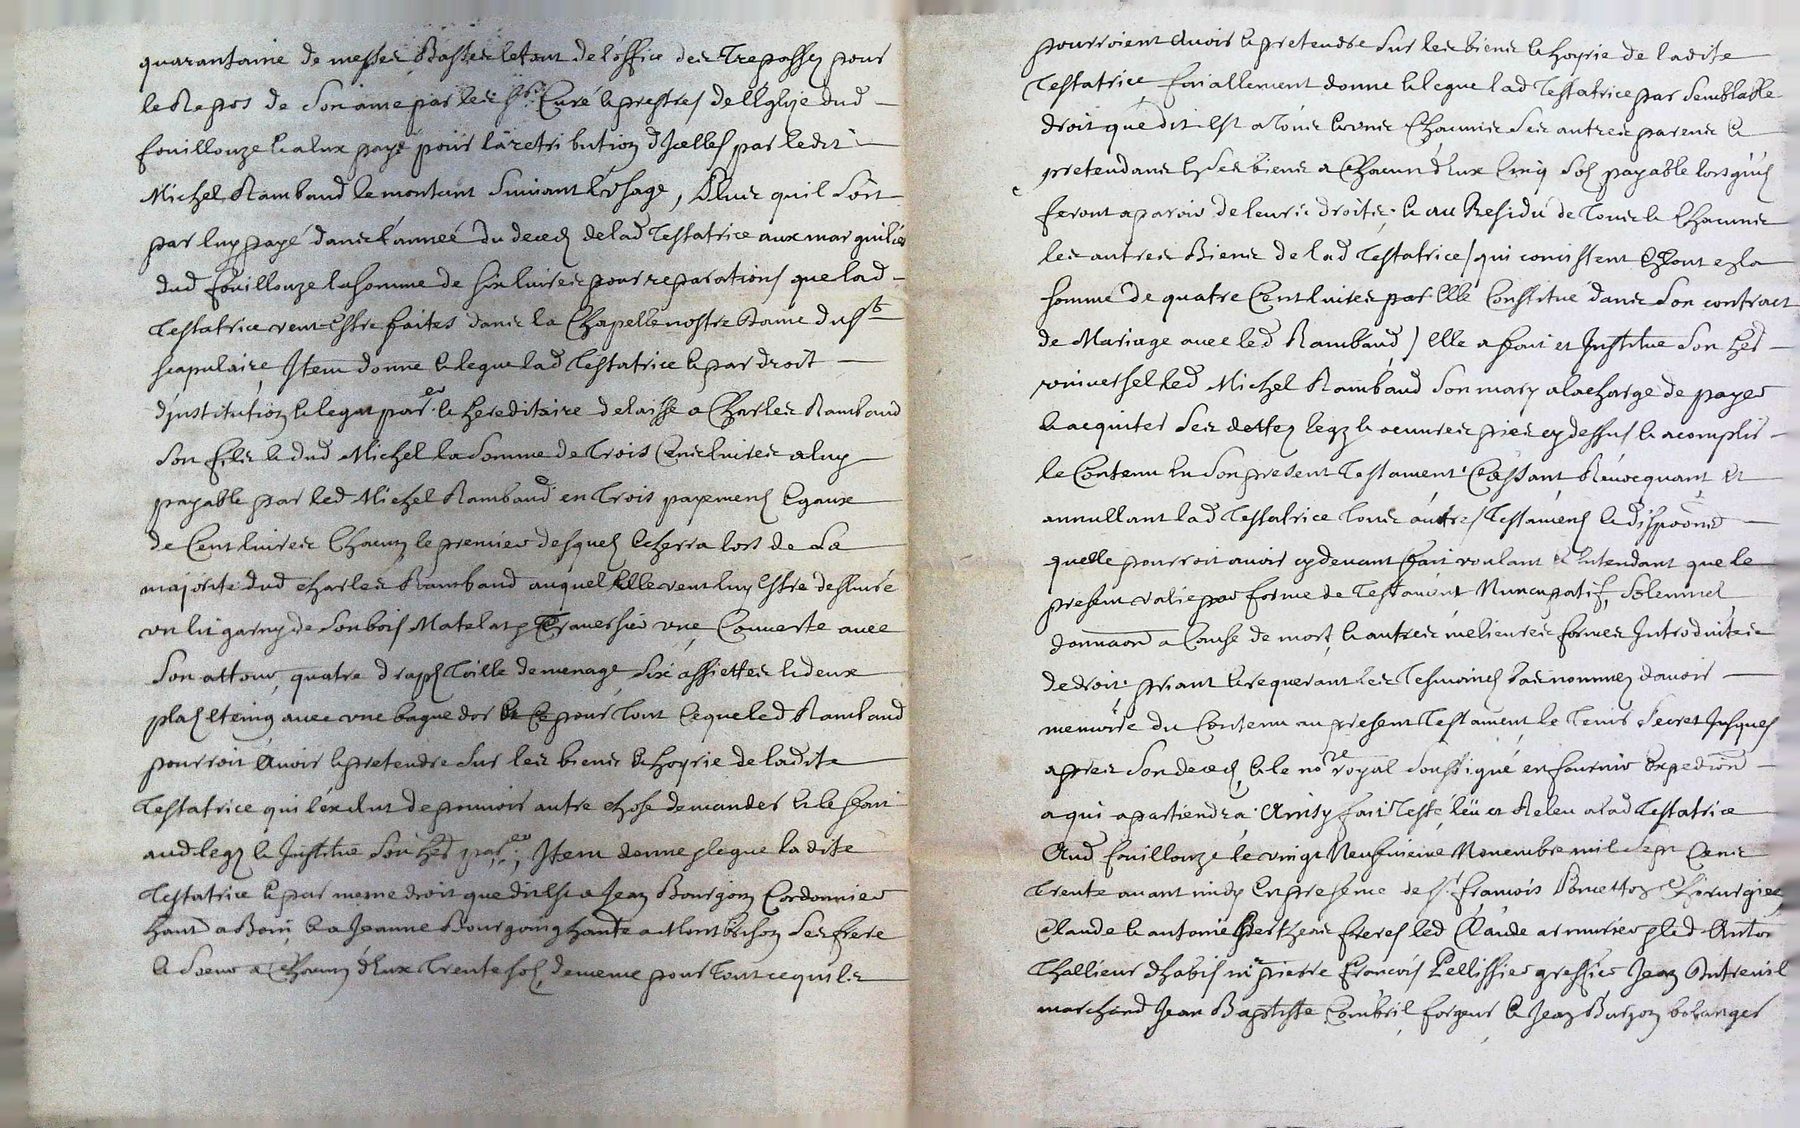 quarantaine de messes Basses letout de l'office des Trepassez pour
le Repos de Son ame par les srs Curé & prestres de lEglize dud
fouillouze & a eux payé pour la retribution d'Jcelles par ledit
Michel Rambaud le montant Suivant l'usage, Plus quil Soit
par luy payé dans l'année du decedz de lad Testatrice aux marguilies
dud fouillouze la somme de six livres pour reparations que lad
Testatrice veut estre faites dans la Chapelle nostre Dame du st
scapulaire Jtem donne & legue lad Testatrice & par droit
d'institution & legat parer & hereditaire delaisse a Charles Rambaud
Son fils & dud Michel la Somme de Trois Cens livres a luy
payable par led Michel Rambaud en Trois payemens Egaux
de Cent livres Chacun le premier desquels Echerra lors de La
majorité dud charles Rambaud auquel Elle veut luy estre deslivré
un lit garny de Son bois Matelat Traversier une Couverte avec
Son attour, quatre draps Toille de menage, Six assiettes & deux
plats Eteing avec une bague dor & Ce pour Tout Ceque led Rambaud
pourroit Avoir & pretendre Sur les biens & hoyrie de ladite
Testatrice qui l'exclut de pouvoir autre chose demander & le fait
aud legz & Jnstitue Son hers parer; Jtem donne & legue ladite
Testatrice & par meme droit que dit Est a Jean Bourgoin Cordonnier
hant a Boin & a Jeanne Bourgoing hante a Montbrison Ses frere
& Soeur a Chacun d'Eux Trente sols, de meme pour Tout ce quils
pourroient Avoir & pretendre Sur les biens & hoyrie de ladite
Testatrice finallement donne & legue lad Testatrice par Semblable
droit que dit Est a Tous & uns Chacuns Ses autres parens &
pretendans En Ses biens a Chacun d'Eux Cinq Sols payable lorsquils
feront aparoir de leurs droits. & au Residu de Tous & Chacuns
les autres Biens de lad Testatrice / qui consistent Etout en la
somme de quatre Cent livres par Elle Constitue dans Son contract
de Mariage avec led Rambaud / Elle a fait et Jnstitue Son hers
universel led Michel Rambaud Son mary a la charge de payer
& acquiter Ses dettes legz & oeuvres pies cy dessus & acomplir
le Contenu En Son present Testament. Cassant Revocquant et
annullant lad Testatrice Tous autres Testamens & disponons
quelle pourroit avoir cy devant fait voulant & Entendant que le
present valie par forme de Testament Nuncupatif, Solemnel
donnaon a Cause de mort, & autres melieures formes Introduites
de droit. priant & requerant les Tesmoins bas nommez d'avoir
memoire du Contenu au present Testament le Tenir Secret Jusques
apres Son decedz, & le nore royal Soussigné en fournir Expedion
a qui apartiendra. Ainsy fait Testé, leu et Releu a lad Testatrice
Aud fouillouze le vingt Neufvieme Novembre mil Sept Cens
Trente avant midy En presence de sr françois Poncetton chirurgien
Claude & antoine Bertheas freres led Claude armurier & led Antoe
Thallieur dhabis me pierre francois Pellissier greffier Jean Autreuil
marchand Jean Baptiste Combril forgeur & Jean Burgon bolanger